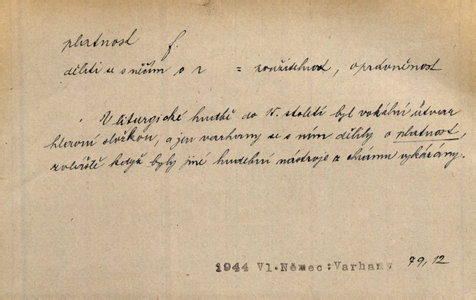 platnost f.
děliti se s něčím o p = použitelnost, oprávněnost
V liturgické hudbě do 15. století byl vokální útvar
hlavní složkou, a jen varhany se s ním dělily o platnost,
zvláště když byly jiné hudební nástroje z chrámu vykázány.
1944 Vl.Němec:Varhany 79,12